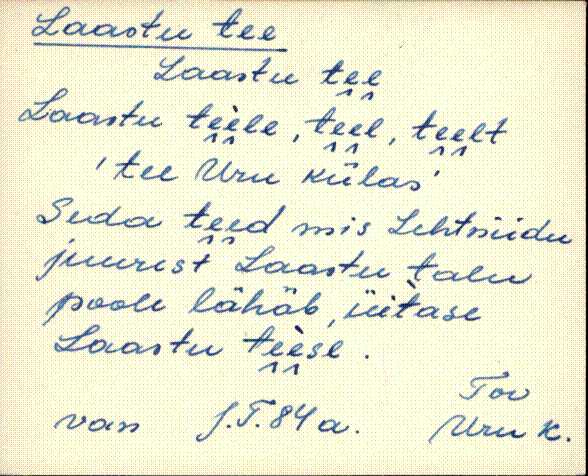 Laastu tee
Laastu tee
Laastu tèèle, teel, teelt
'tee Uru külas'
Seda teed mis Lehtsiidu
juurest Laastu talu
poole lähäb, üitase
Laastu tèèse.
Tov
van J.T. 84 a. Uru k.